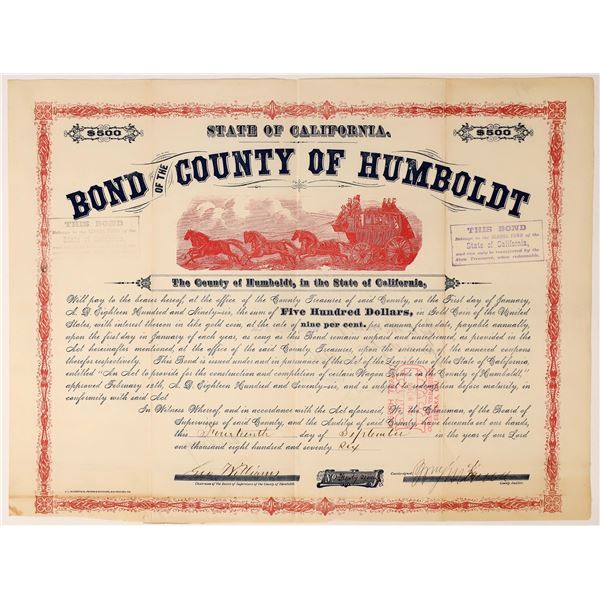 $500
STATE OF CALIFORNIA.
$500
BOND OF THE COUNTY OF HUMBOLDT
THIS BOND
Belongs to the SCHOOL FUND of the
State of California,
THIS BOND
Belongs to the SCHOOL FUND of the
State of California,
and can only be transferred by the
State Treasurer, when redeemable.
The County of Humboldt, in the State of California,
Will pay to the bearer hereof, at the office of the County Treasurer of said County, on the First day of January,
A. D. Eighteen Hundred and Ninety-six, the sum of Five Hundred Dollars, in Gold Coin of the United
States, with interest thereon in like gold coin, at the rate of nine per cent. per annum, from date, payable annually,
upon the first day in January of each year, as long as this Bond remains unpaid and unredeemed, as provided in the
Act hereinafter mentioned, at the office of the said County Treasurer, upon the surrender of the annexed coupons
therefor respectively. This Bond is issued under and in pursuance of the Act of the Legislature of the State of California,
entitled "An Act to provide for the construction and completion of certain Wagon Roads in the County of Humboldt,"
approved February 12th, A. D. Eighteen Hundred and Seventy-six, and is subject to redemption before maturity, in
conformity with said Act
In Witness Whereof, and in accordance with the Act aforesaid, We, the Chairman, of the Board of
Supervisors of said County, and the Auditor of said County, have hereunto set our hands,
this Fourteenth day of September in the year of our Lord
one thousand eight hundred and seventy Six
Geo Williams
Chairman of the Board of Supervisors of the County of Humboldt.
No
Countersigned
County Auditor.